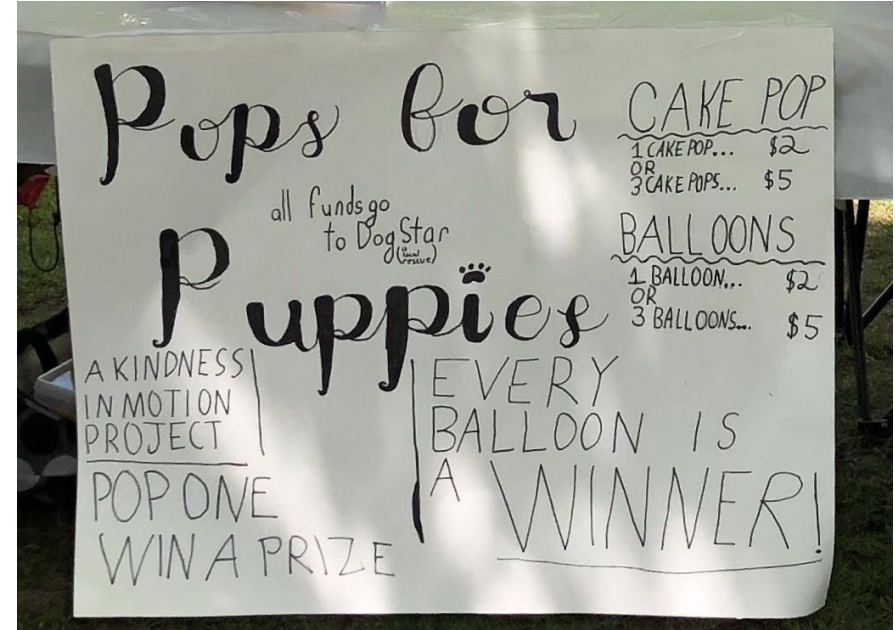 Pops for
all funds go
to Dog Star
(local
rescue)
Puppies
CAKE POP
1 CAKE POP... $2
OR
3 CAKE POPS... $5
BALLOONS
1 BALLOON... $2
OR
3 BALLOONS... $5
A KINDNESS
IN MOTION
PROJECT
POP ONE
WIN A PRIZE
EVERY
BALLOON IS
A WINNER!